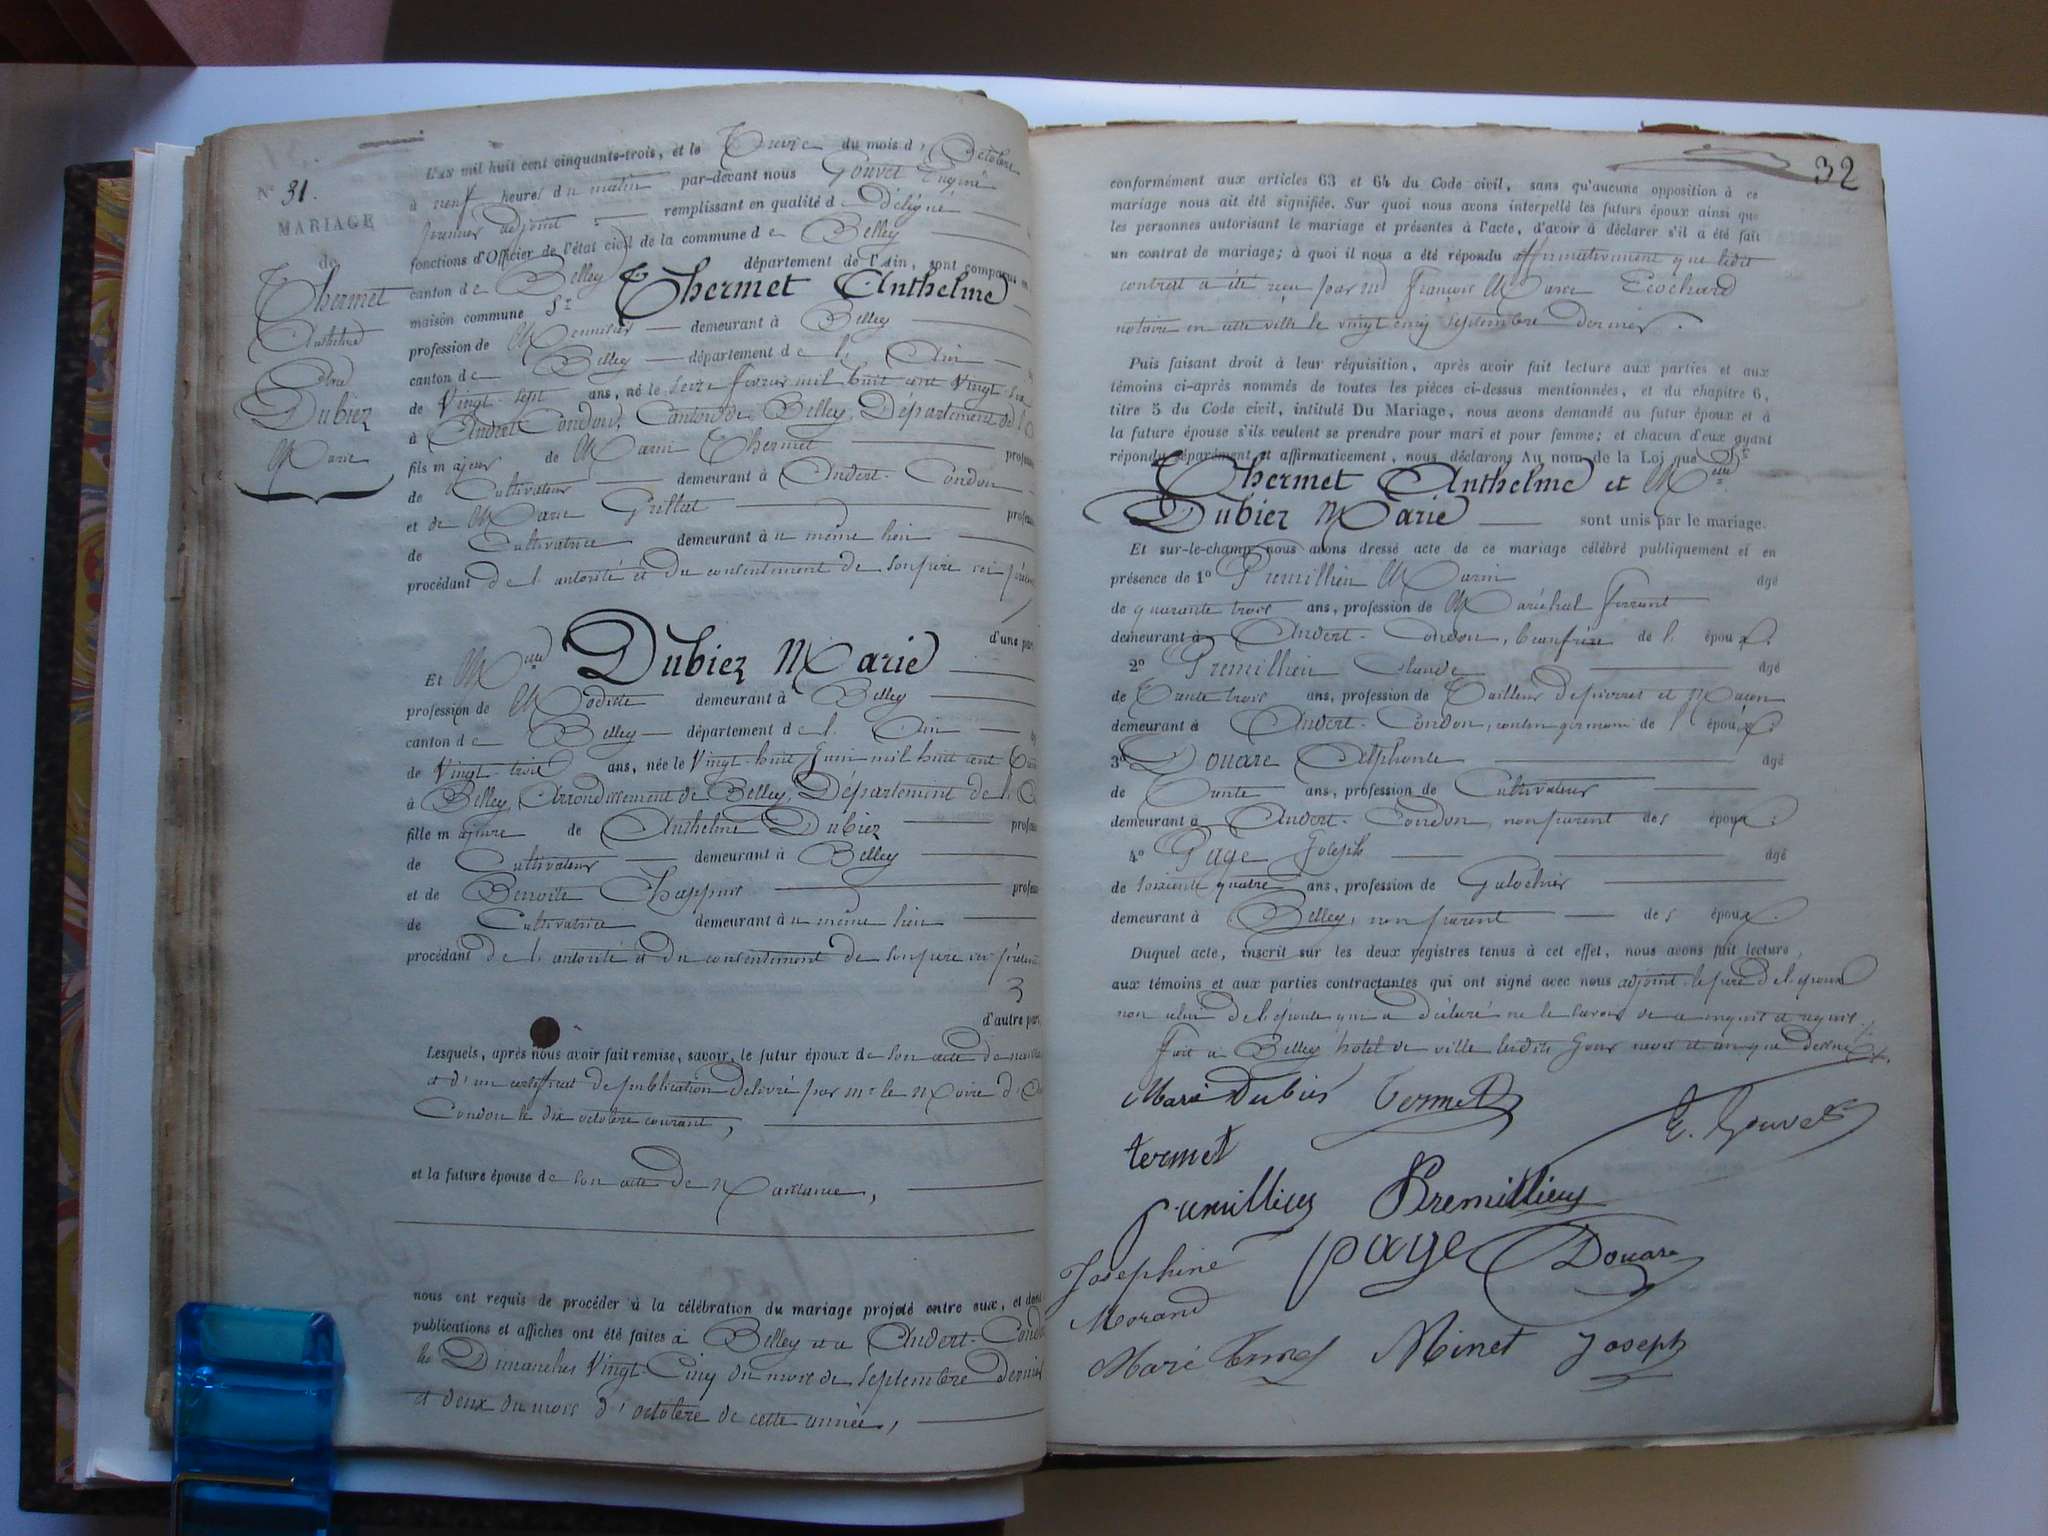 N° 31.
MARIAGE
de
Thermet
Anthelme
et
Dubiez
Marie
L'AN mil huit cent cinquante-trois, et le Treize du mois d'Octobre
à neuf heures du matin par-devant nous Gouvet Eugène
premier adjoint remplissant en qualité de Délégué
fonctions d'Officier de l'état civil de la commune de Belley
canton de Belley département de l'Ain, sont comparus en
maison commune Sr Thermet Anthelme
profession de Meunier demeurant à Belley
canton de Belley département de l'Ain
de Vingt-sept ans, né le seize février mil huit cent vingt-six
à Andert-Condon, Canton de Belley, Département de l'
fils majeur de Marin Thermet
de Cultivateur demeurant à Andert-Condon
et de Marie Grillat
de Cultivatrice demeurant au même lieu
procédant de l'autorité et du consentement de son père ici
d'une part
Et Melle Dubiez Marie
profession de Modiste demeurant à Belley
canton de Belley département de l'Ain
de Vingt-trois ans, née le Vingt-huit Juin mil huit cent
à Belley, Arrondissement de Belley, Département de l'
fille majeure de Anthelme Dubiez
de Cultivateur demeurant à Belley
et de Benoite Chappuis
de Cultivatrice demeurant au même lieu
procédant de l'autorité et du consentement de son père ici
d'autre part,
Lesquels, après nous avoir fait remise, savoir, le futur époux de son acte de
et d'un certificat de publication délivré par Mr le Maire d'
Condon le dix octobre courant,
et la future épouse de son acte de Naissance,
nous ont requis de procéder à la célébration du mariage projeté entre eux, et dont
publications et affiches ont été faites à Belley et à Andert-Condon
les Dimanches Vingt-Cinq du mois de Septembre Dernier
et deux du mois d'octobre de cette année,
32
conformément aux articles 63 et 64 du Code civil, sans qu'aucune opposition à ce
mariage nous ait été signifiée. Sur quoi nous avons interpellé les futurs époux ainsi que
les personnes autorisant le mariage et présentes à l'acte, d'avoir à déclarer s'il a été fait
un contrat de mariage; à quoi il nous a été répondu affirmativement que ledit
contrat a été reçu par Me François Marie Ecochard
notaire en cette ville le vingt cinq Septembre dernier.
Puis faisant droit à leur réquisition, après avoir fait lecture aux parties et aux
témoins ci-après nommés de toutes les pièces ci-dessus mentionnées, et du chapitre 6,
titre 5 du Code civil, intitulé Du Mariage, nous avons demandé au futur époux et à
la future épouse s'ils veulent se prendre pour mari et pour femme; et chacun d'eux ayant
répondu séparément et affirmativement, nous déclarons Au nom de la Loi que Sr
Thermet Anthelme et Melle
Dubiez Marie sont unis par le mariage.
Et sur-le-champ nous avons dressé acte de ce mariage célébré publiquement et en
présence de 1° Premillieu Marin âgé
de quarante trois ans, profession de Maréchal ferrant
demeurant à Andert-Condon, beaufrère de l'époux.
2° Premillieu Claude âgé
de Trente trois ans, profession de Tailleur de pierres et Maçon
demeurant à Andert-Condon, cousin germain de l'époux.
3° Douare Alphonse âgé
de Trente ans, profession de Cultivateur
demeurant à Andert-Condon, non parent des époux.
4° Page Joseph âgé
de soixante quatre ans, profession de Galochier
demeurant à Belley, non parent des époux.
Duquel acte, inscrit sur les deux registres tenus à cet effet, nous avons fait lecture
aux témoins et aux parties contractantes qui ont signé avec nous adjoint, le père de l'époux
non celui de l'épouse qui a déclaré ne le savoir de ce enquis et requis.
Fait à Belley hôtel de ville lesdits Jour mois et an que dessus.
Marie Dubiès Termet
E. Gouvet
termet
premillieu Premillieu
Josephine page Douare
Morand
Marie Termet Minet Joseph